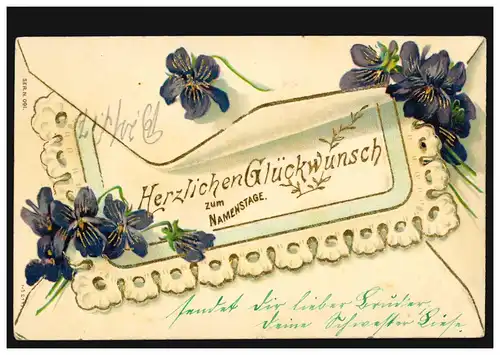 SER.N. 091.
Herzlichen Glückwunsch
zum
NAMENSTAGE.
sendet Dir lieber Bruder,
deine Schwester Liese.